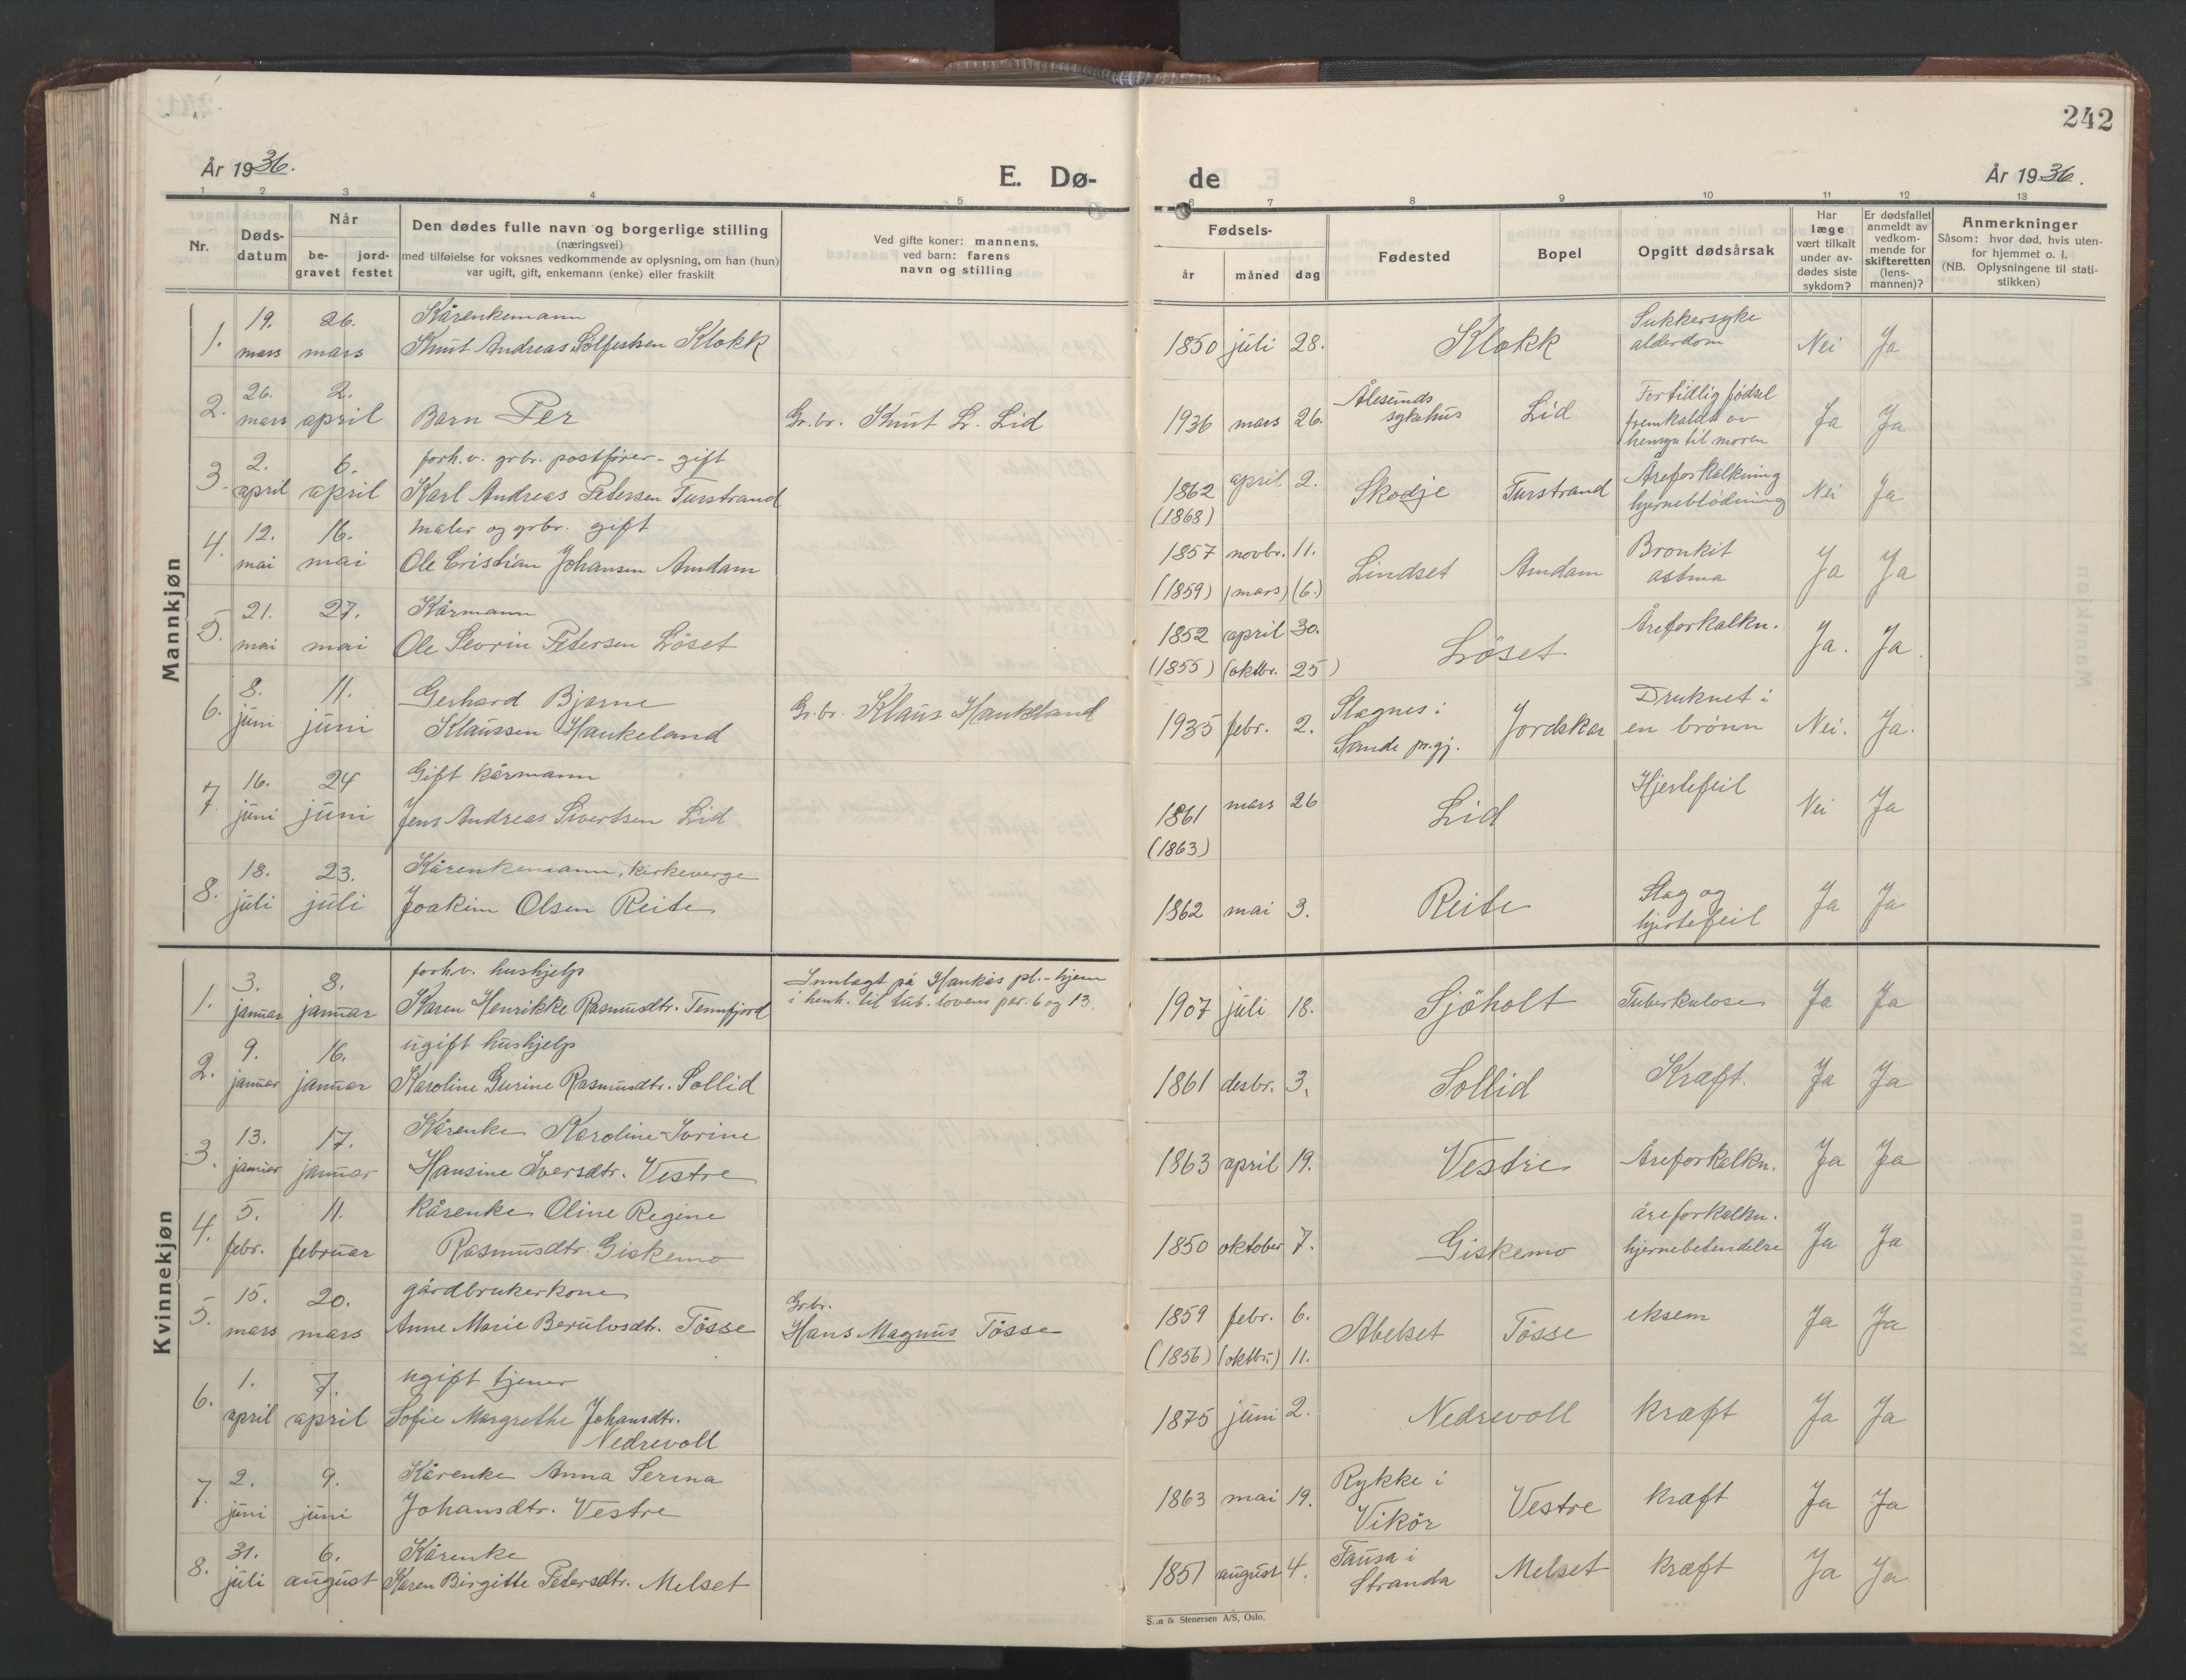 242
År 1936.
E. Dø-
de
År 1936.
1 2 3 4 5 6 7 8 9 10 11 12 13
Nr.
Døds-
datum
Når
be-
gravet
jord-
festet
Den dødes fulle navn og borgerlige stilling
(næringsvei)
med tilføielse for voksnes vedkommende av oplysning, om han (hun)
var ugift, gift, enkemann (enke) eller fraskilt
Ved gifte koner: mannens,
ved barn: farens
navn og stilling
Fødsels-
år måned dag
Fødested
Bopel
Opgitt dødsårsak
Har
læge
vært tilkalt
under av-
dødes siste
sykdom?
Er dødsfallet
anmeldt av
vedkom-
mende for
skifteretten
(lens-
mannen)?
Anmerkninger
Såsom: hvor død, hvis uten-
for hjemmet o. l.
(NB. Oplysningene til stati-
stikken)
Mannkjøn
19. 26. Kårenkemann Sukkersyke
1. mars mars Knut Andreas Sølfestsen Klokk 1850 juli 28. Klokk alderdom Nei Ja
26. 2. Ålesunds Fortidlig fødsel
2. mars april Barn Per Gr.br. Knut L. Lid 1936 mars 26. sykehus Lid fremkaldt av Ja Ja
til moren
2. 6. forh.v. grbr. postfører - gift Åreforkalkning
3. april april Karl Andreas Petersen Turstrand 1862 april 2. Skodje Turstrand hjerneblødning Nei Ja
(1868)
12. 16. maler og grbr. gift 1857 novbr. 11. Bronkit
4. mai mai Ole Cristian Johansen Amdam Lindset Amdam astma Ja Ja
(1859) (mars) (6.)
21. 27. Kårmann 1852 april 30. Åreforkalkn.
5. mai mai Ole Sevrin Petersen Løset Løset Ja. Ja.
(1855) (oktbr. 25)
8. 11. Gerhard Bjarne Slagnes i Druknet i
6. juni juni Klaussen Haukeland Gr.br. Klaus Haukeland 1935 febr. 2. Sande pr.gj. Jordskar en brønn Nei. Ja.
16. 24 Gift kårmann Hjertefeil
7. juni juni Jens Andreas Sivertsen Lid 1861 mars 26 Lid Nei Ja
(1863)
18. 23. Kårenkemann, kirkeverge Slag og
8. juli juli Joakim Olsen Reite 1862 mai 3. Reite hjertefeil Ja Ja
Kvinnekjøn
3. 8. forh.v. hushjelp Innlagt på Haukås pl.-hjem
1. januar januar Karen Henrikke Rasmusdtr. Tennfjord i henh. til tub. lovens par. 6 og 13. 1907 juli 18. Sjøholt Tuberkulose Ja Ja
9. 16. ugift hushjelp
2. januar januar Karoline Gurine Rasmusdtr. Sollid 1861 desbr. 3. Sollid Kræft. Ja Ja
13. 17. Kårenke Karoline Ivrine
3. januar januar Hansine Iversdtr. Vestre 1863 april 19. Vestre Åreforkalkn. Ja Ja
5. 11. Kårenke Oline Regine åreforkalkn.
4. febr. februar Rasmusdtr. Giskemo 1850 oktober 7. Giskemo hjernebetendelse Ja Ja
15. 20. gårdbrukerkone Grbr. 1859 febr. 6. eksem
5. mars mars Anne Marie Berulvsdtr. Tøsse Hans Magnus Tøsse Abelset Tøsse Ja Ja
(1856) (oktbr.) 11.
1. 7. ugift tjener
6. april april Sofie Margrethe Johansdtr. 1875 juni 2. Nedrevoll kræft Ja Ja
Nedrevoll
2. 9. Kårenke Anna Serina Rykke i
7. juni juni Johansdtr. Vestre 1863 mai 19. Vikør Vestre kræft Ja Ja
31. 6. Kårenke Fausa i
8. juli august Karen Birgitte Petersdtr. Melset 1851 august 4. Stranda Melset kræft Ja Ja
& Stenersen A/S, Oslo.